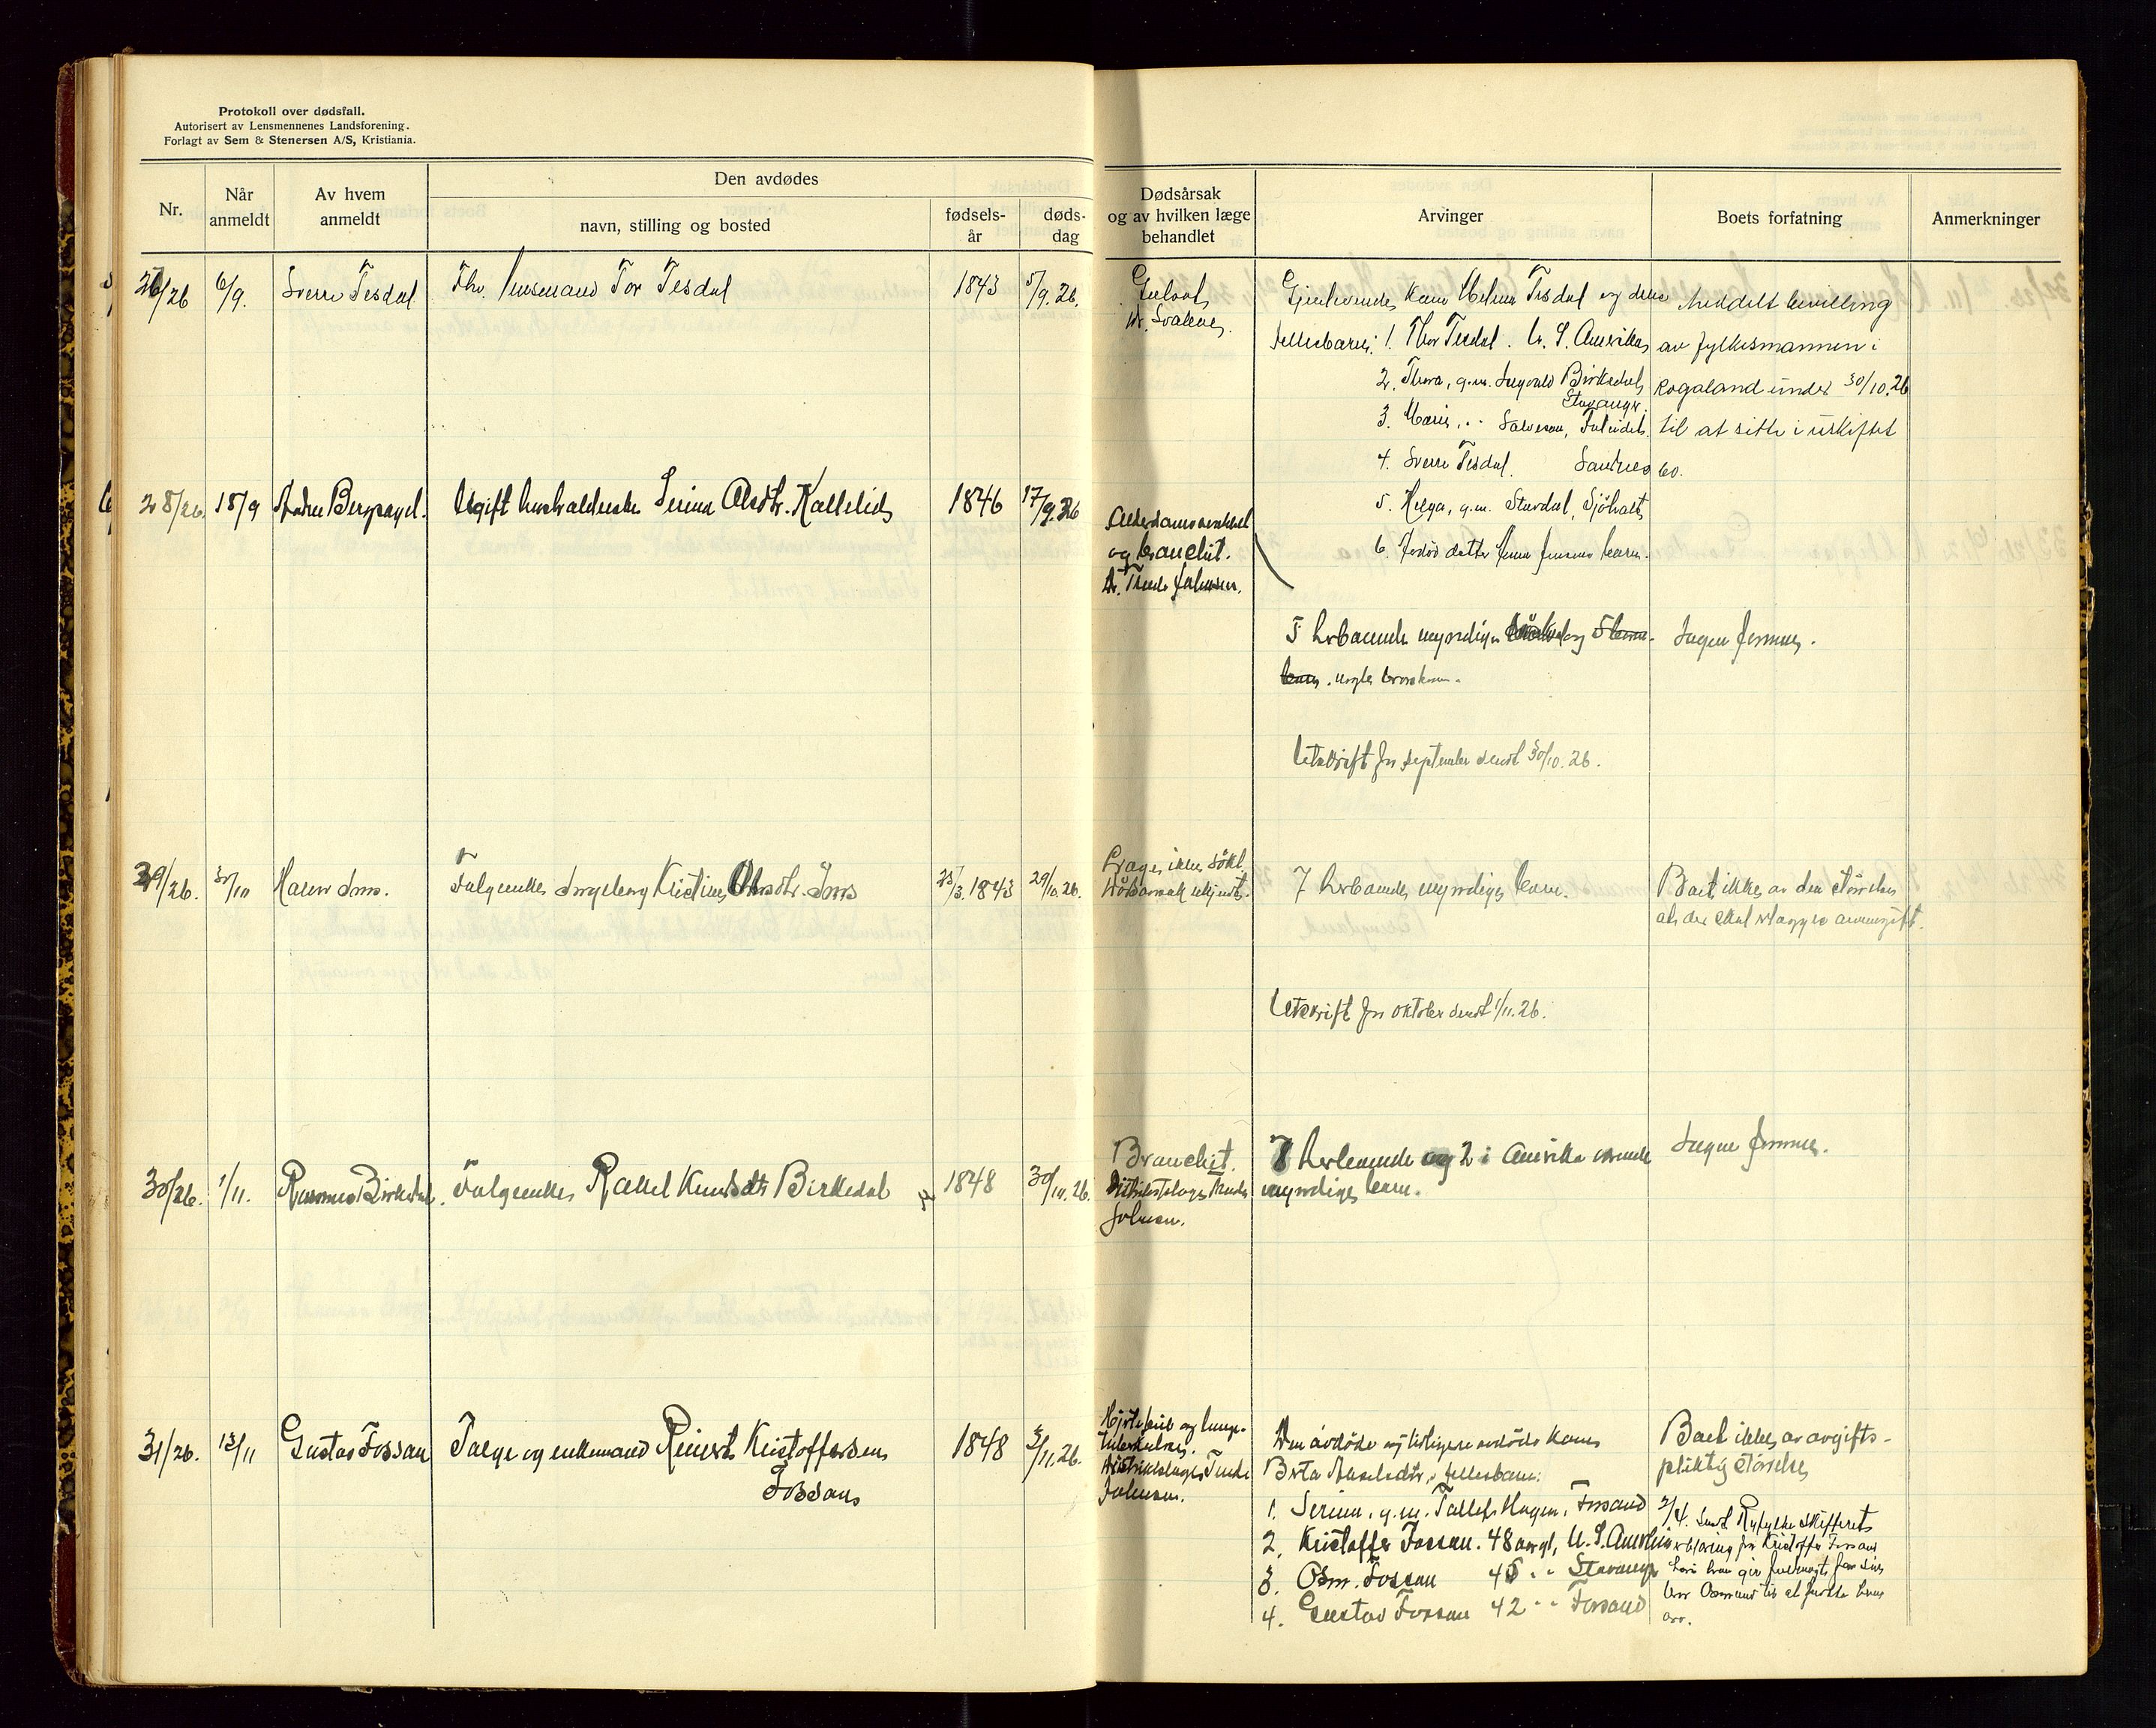 Protokoll over dødsfall.
Autorisert av Lensmennenes Landsforening.
Forlagt av Sem & Stenersen A/S, Kristiania.
Nr.
Når anmeldt
Av hvem anmeldt
Den avdødes
navn, stilling og bosted
fødsels-år
døds-dag
Dødsårsak og av hvilken læge behandlet
Arvinger
Boets forfatning
Anmerkninger
6/9. Sverre Tesdal
Fhv. lensmand Tor Tesdal
1843 5/9. 26.
Gulsot
Gjenlevende kone Helene Tesdal og deres
fellesbarn: 1. Thor Tesdal. U. S. Amerika,
2. Thora, g.m. Birkedal,
Stavanger.
3. Marie, " Salvesen,
4. Sverre Tesdal. Sandnes
5. Helga, g.m. Stavdal, Sjøholt
6. Avdød datter barn.
Meddelt bevilling
av fylkesmannen i
Rogaland under 30/10.26
til at sitte i uskiftet
bo.
28/26. 18/9
Ugift husholderske Serina Olsdtr. Kallelid
1846 17/9.26
Alderdomssvakhet
og bronchit.
Dr. Trude Johnsen.
5 herboende myndige og
Ingen formue.
Utskrift for september sendt 30/10.26.
29/26. 30/10
Folgeenke Ingeborg Kristine Olsdtr. Ims
25/3.1843 29/10.26.
Læge ikke søkt.
Dødsårsak ukjendt.
7 herboende myndige barn.
Boet ikke av den størrelse
at der skal arveavgift.
Utskrift for oktober sendt 1/11.26.
30/26. 1/11. Rasmus Birkedal.
Folgeenke Rakel Knudsdtr Birkedal
1848 30/10.26.
Bronchit.
Distriktslæge Trude
Johnsen.
7 herboende og 2 i Amerika værende
myndige barn.
Ingen formue.
31/26. 13/11 Gustav Fossan
Folge og enkemand Reinert Kristoffersen
Fossan
1848 3/11.26.
Hjertefeil og lunge-
tuberkulose.
Distriktslæge Trude
Johnsen.
Den avdøde og tidligere avdøde kone
Berta fellesbarn:
1. Serina, g.m. Tallef Hagen, Forsand
2. Kristoffer Fossan. 48 aar gl, U. S. Amerika
3. Osm. Fossan 45 " " Stavanger
4. Gustav Fossan 42 " " Forsand
Boet ikke av avgifts-
pliktig størrelse
2/4. sendt Ryfylke skifteret
erklæring fra Kristoffer Fossan
hvori han gir fuldmagt for sin
bror Osmund til at hans
arv.